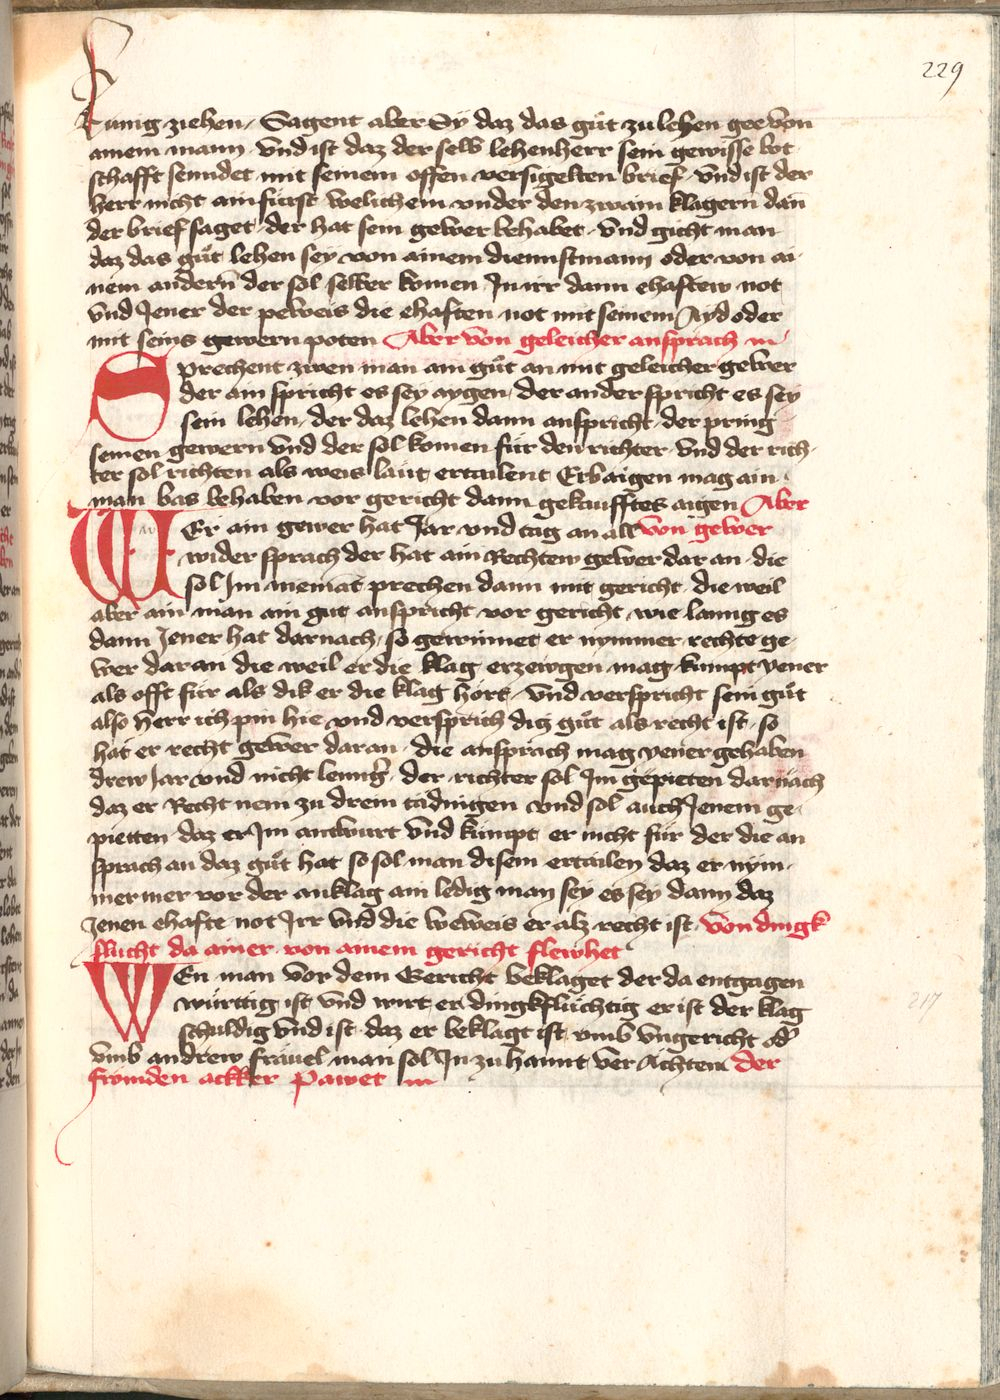 229
kunig ziehen / Sagent aber Sy daz das gůt zu lehen gee von
ainem mann · vnd ist daz der selb lehenherr sein gewisse bot
schafft senndet mit seinem offen versigelten brief · vnd ist der
herr nicht ain fürst welichem vnder den zwain klagern dan̄
der brief saget · der hat sein gewer behabet · vnd gicht man
daz das gůt lehen sey von ainem diennstmann oder von ai·
nem andern̄ der sol selber komen Jn irr dann ehaftew not
vnd Jener der peweis die ehaften not mit seinem Ayd oder
mit seins gewern poten Aber von geleicher ansprach
Sprechent zwen man ain gůt an mit geleicher gewer
der ain spricht es sey aygen / der ander spricht es sey
sein lehen / der daz lehen dann anspricht / der pring
seinen gewern vnd der sol komen für den richter · vnd der rich·
ter sol richten als weis läut ertailent Erbaigen mag ain·
man bas behaben vor gericht dann gekaufftes aigen Aber
WEr ain gewer hat Jar vnd tag an all von gewer
wider sprach der hat ain Rechtew gewer dar an · die
sol Jm niemat prechen dann mit gericht · die weil
aber ain man ain gut anspricht vor gericht wie lanng es
dann Jener hat darnach / so gewinnet er nymmer rechte ge·
wer dar an die weil er die klag erzewgen mag · kumpt yener
als offt für als dik er die klag hört / vnd verspricht sein gůt
also herr ich pin hie vnd versprich ditz gůt als recht ist / so
hat er recht gewer dar an · die ansprach mag yener gehaben
drew Jar vnd nicht lenng̉ · der richter sol Jm gepieten darnach
daz er Recht nem zu drein tädingen vnd sol auch Jenem ge·
pietten daz er Jm antwurt vnd kumpt er nicht für der die an
sprach an daz gůt hat so sol man disem ertailen daz er nym·
mer mer vor der anklag ain ledig man sey es sey dann daz
Jenen ehafte not Jrr vnd die beweis er alz recht ist · von dingk
flucht da ainer von ainem gericht flewhet
WEn man vor dem Gericht beklaget der da entgagen
württig ist vnd wirt er dingkflüchtig er ist der klag
schuldig vnd ist daz er beklagt ist vmb vngericht od̉
vmb andrew fräuel man sol Jn zu hannt ver Achten der
frömden ackker Pawet
217